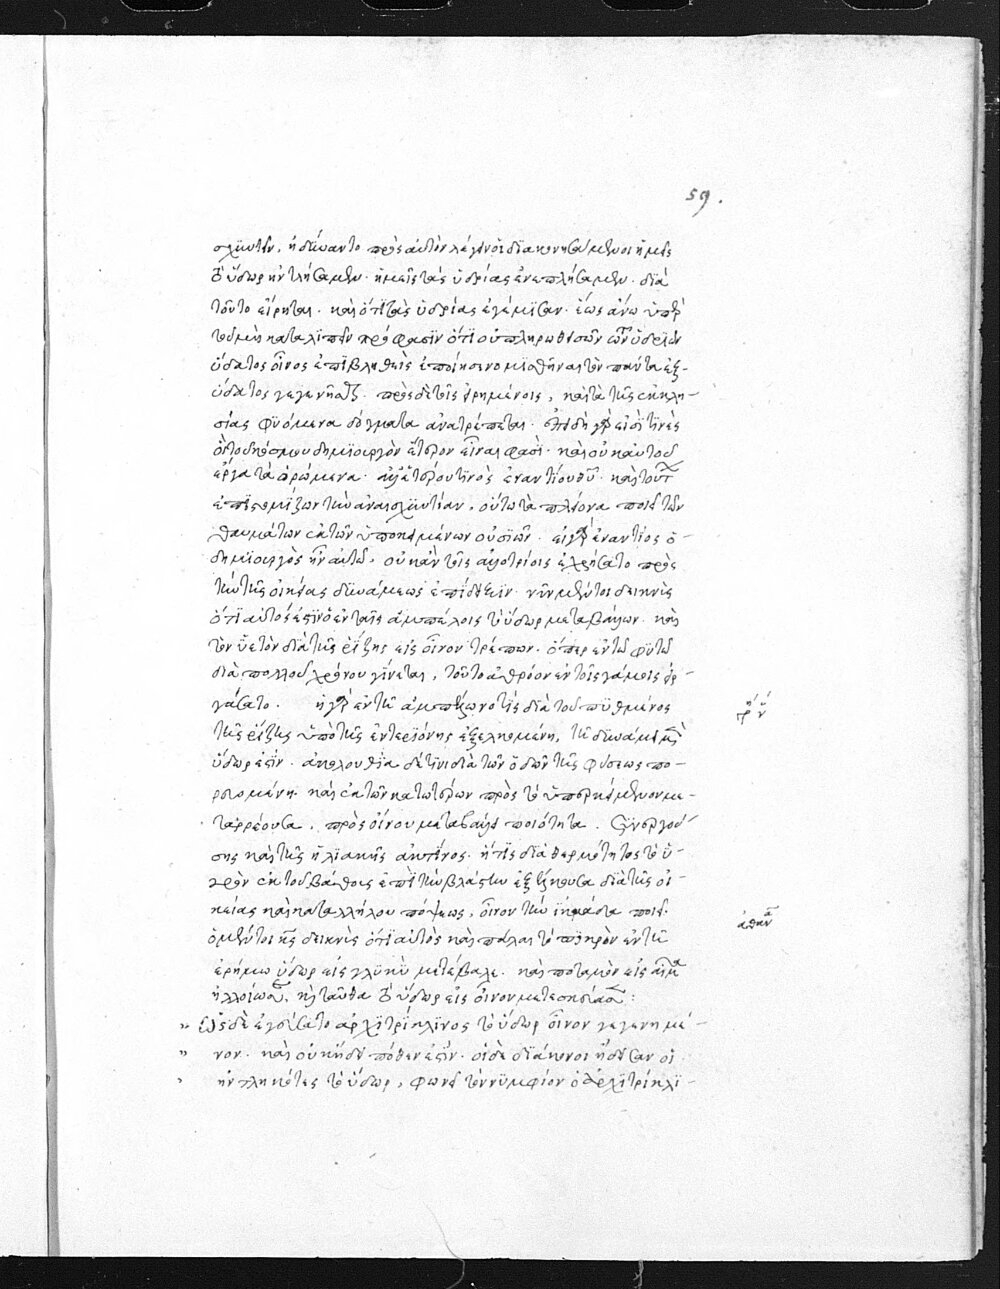 59.
σχυντεῖν, ἠδύναντο πρὸς αὐτὸν λέγειν οἱ διακονησάμενοι ἡμεῖς
τὸ ὕδωρ ἠντλήσαμεν· ἡμεῖς τὰς ὑδρίας ἐνεπλήσαμεν· διὰ
τοῦτο εἴρηται· καὶ ὅτι τὰς ὑδρίας ἐγέμισαν ἕως ἄνω ὑπὲρ
τοῦ μὴ καταλιπεῖν πρόφασιν ὅτι οὐ πληρωθεισῶν τῶν ὑδριῶν
ὕδατος οἶνος ἐπιβληθεὶς ἐποίησε νομισθῆναι τὸν πάντα ἐξ
ὕδατος γεγενῆσθαι· πρὸς δὲ τοῖς εἰρημένοις, καὶ τὰ τῆς ἐκκλη-
σίας φυόμενα δόγματα ἀνατρέπεται· ἐπειδὴ γὰρ εἰσί τινες
οἳ τοῦ κόσμου δημιουργὸν ἕτερον εἶναι φασί· καὶ οὐκ αὐτοῦ
ἔργα τὰ ὁρώμενα· ἀλλ' ἑτέρου τινὸς ἐναντίου θεοῦ· καὶ τούτων
ἐπιστομίζων τὴν ἀναισχυντίαν, οὕτω τὰ πλείονα ποιεῖ τῶν
θαυμάτων ἐκ τῶν ὑποκειμένων οὐσιῶν· εἰ γὰρ ἐναντίος ὁ
δημιουργὸς ἦν αὐτῷ, οὐκ ἂν τοῖς ἀλλοτρίοις ἐχρήσατο πρὸς
τὴν τῆς οἰκείας δυνάμεως ἐπίδειξιν· νῦν μέντοι δεικνὺς
ὅτι αὐτός ἐστιν ὁ ἐν ταῖς ἀμπέλοις τὸ ὕδωρ μεταβάλλων· καὶ
τὸν ὑετὸν διὰ τῆς ῥίζης εἰς οἶνον τρέπων· ὅπερ ἐν τῷ φυτῷ
διὰ πολλοῦ χρόνου γίνεται, τοῦτο ἀθρόον ἐν τοῖς γάμοις εἰρ-
γάσατο. ἡ γὰρ ἐν τῇ ἀμπέλῳ νοτὶς διὰ τοῦ πυθμένος
τῆς ῥίζης ὑπὸ τῆς ἐντεριώνης ἐξελκομένη, τῇ δυνάμει μὲν
ὕδωρ ἐστίν· ἀκολουθίᾳ δέ τινι διὰ τῶν ὁδῶν τῆς φύσεως πο-
ρευομένη καὶ ἐκ τῶν κατωτέρων πρὸς τὸ ὑπερκείμενον με-
ταρρέουσα, πρὸς οἴνου μεταβάλλει ποιότητα. συνεργού-
σης καὶ τῆς ἡλιακῆς ἀκτῖνος· ἥτις διὰ θερμότητος τὸ ὑ-
γρὸν ἐκ τοῦ βάθους ἐπὶ τὴν βλάστην ἐξέλκουσα διὰ τῆς οἰ-
κείας καὶ καταλλήλου πέψεως, οἶνον τὴν ἰκμάδα ποιεῖ·
ὁ μέντοι κύριος δεικνὺς ὅτι αὐτὸς καὶ πάλαι τὸ πικρὸν ἐν τῇ
ἐρήμῳ ὕδωρ εἰς γλυκὺ μετέβαλε· καὶ ποταμὸν εἰς αἷμα
ἠλλοίωσε, κἀνταῦθα τὸ ὕδωρ εἰς οἶνον μετεσκεύασεν:
Ὡς δὲ ἐγεύσατο ἀρχιτρίκλινος τὸ ὕδωρ οἶνον γεγενημέ-
νον· καὶ οὐκ ᾔδει πόθεν ἐστίν· οἱ δὲ διάκονοι ᾔδεισαν οἱ
ἠντληκότες τὸ ὕδωρ, φωνεῖ τὸν νυμφίον ὁ ἀρχιτρίκλι-